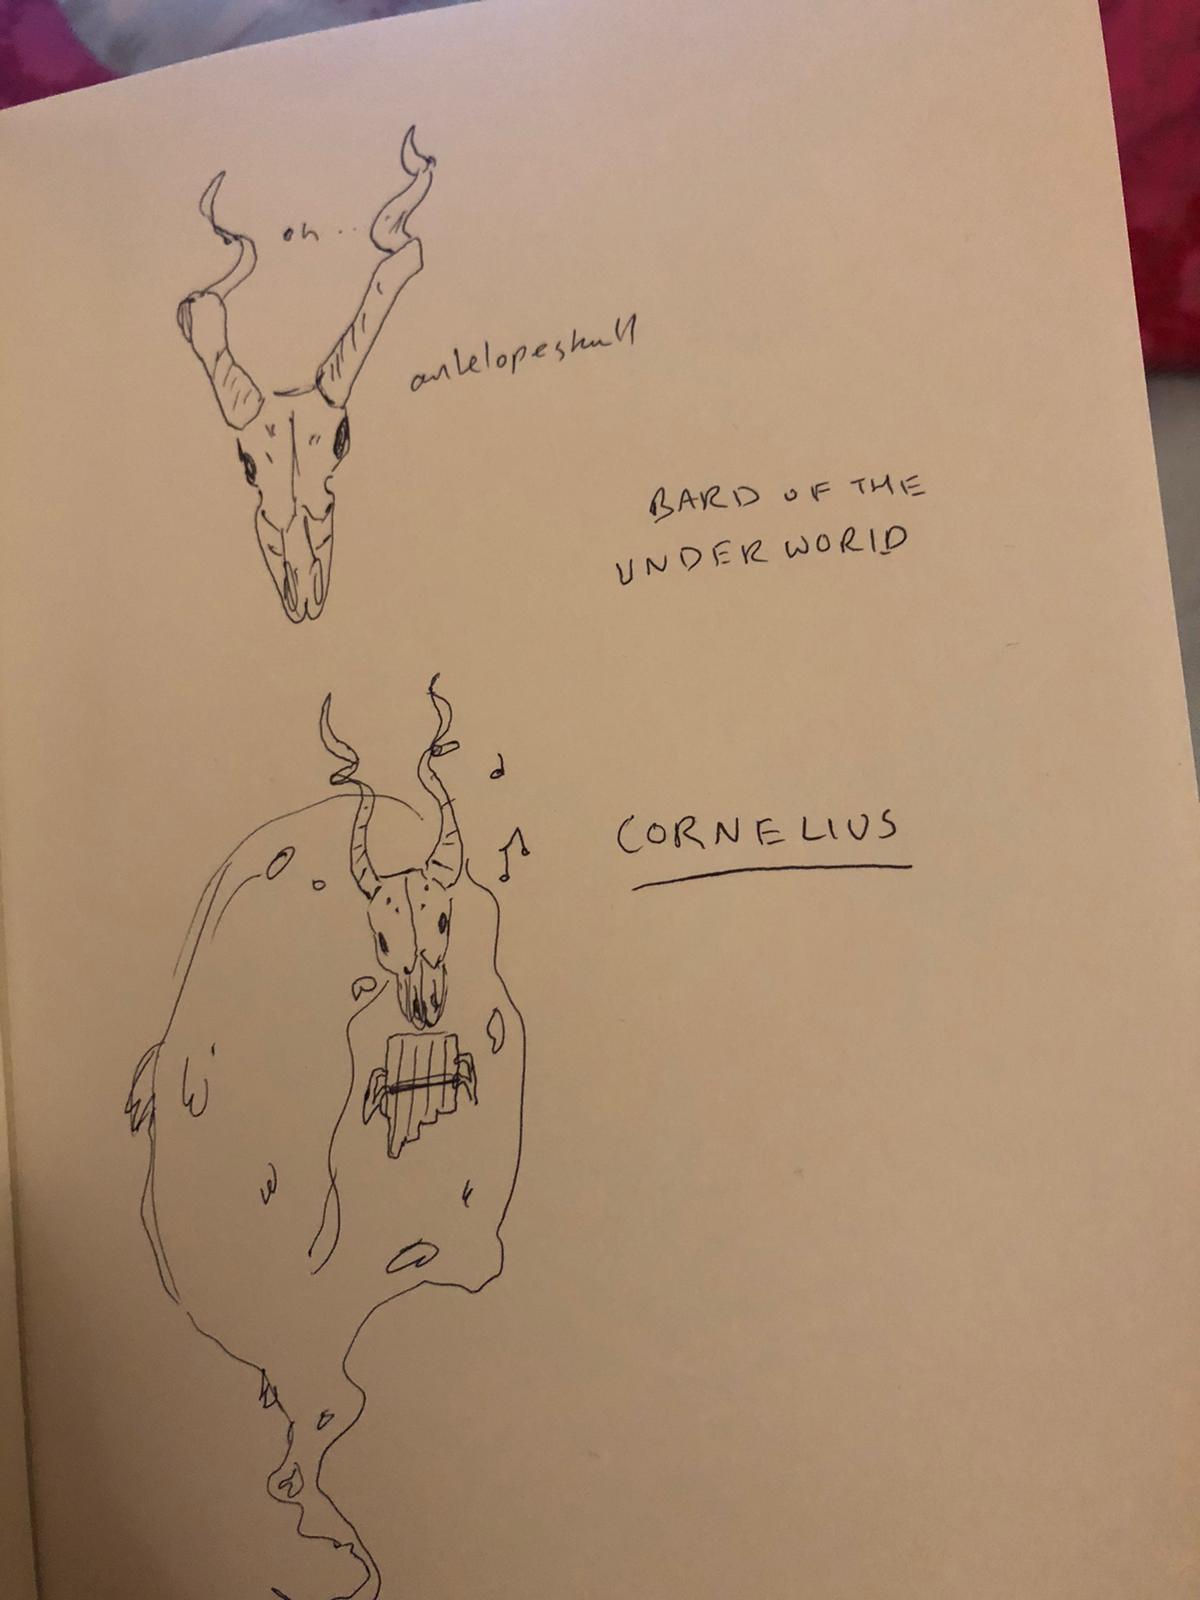 oh..
antelopeskull
BARD OF THE
UNDERWORLD
CORNELIUS